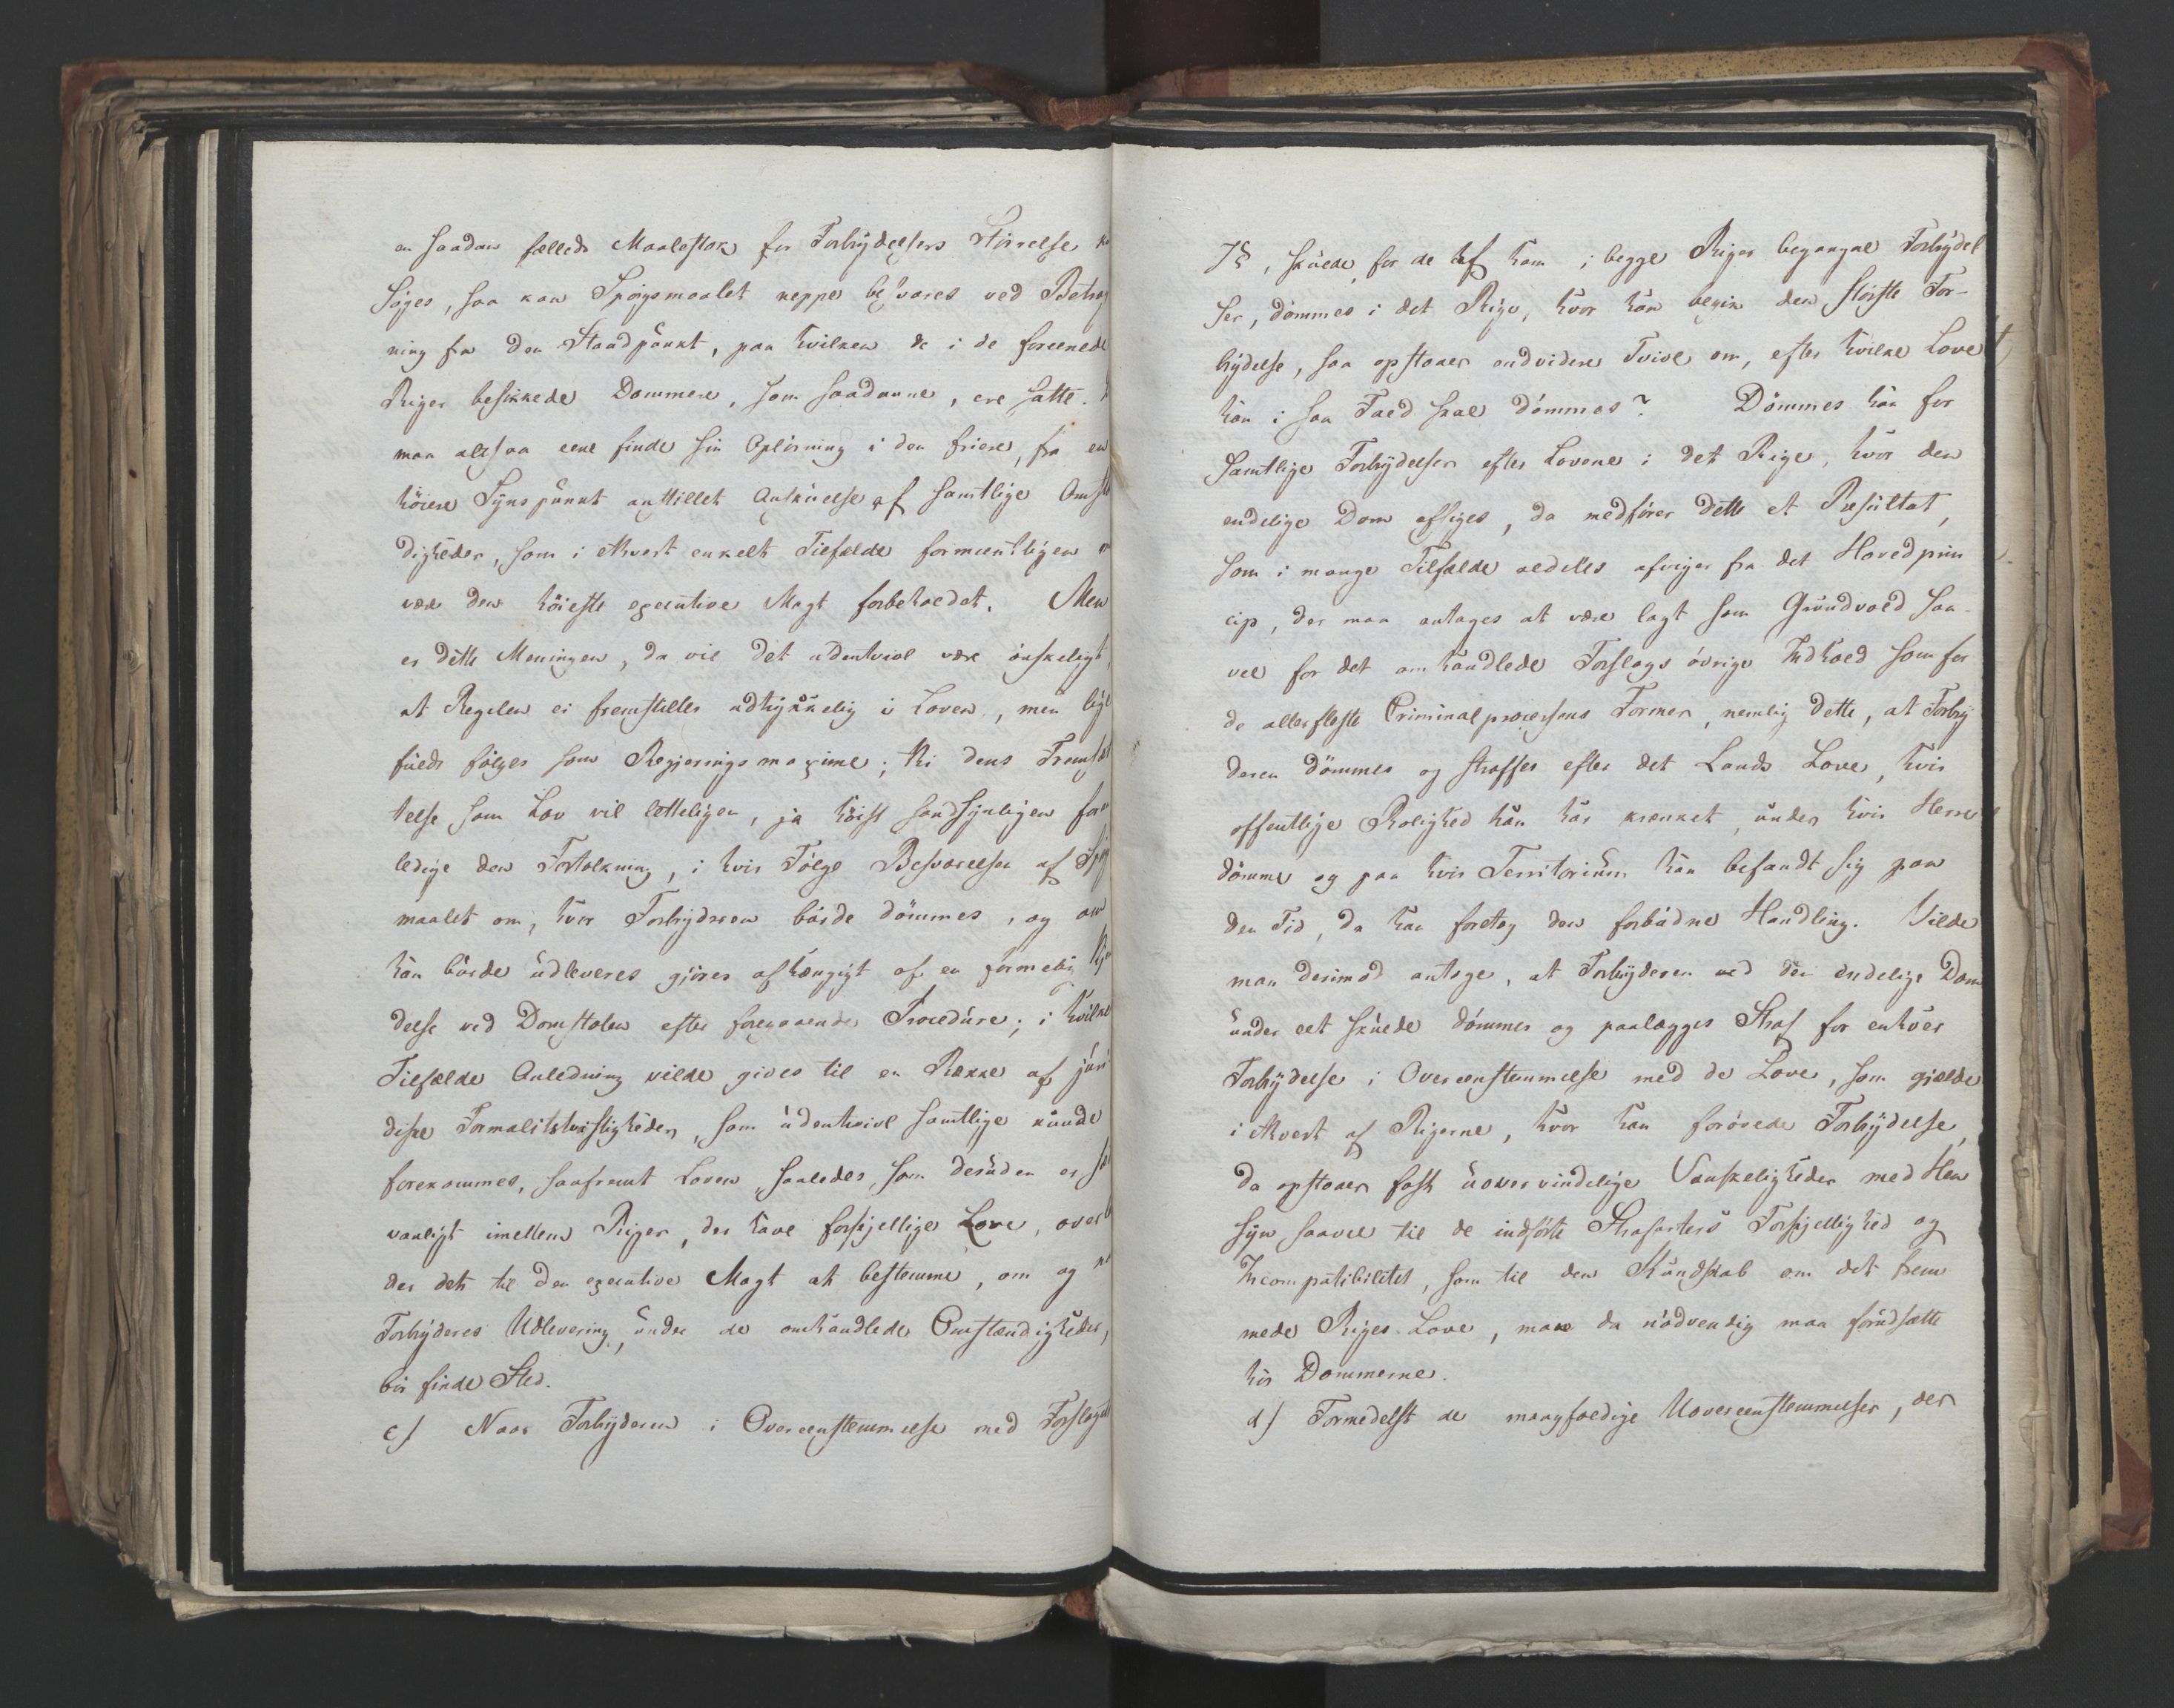 en saadan fælleds Maalestok for Forbrydelsers Störrelse
söges, saa kan Spörgsmaalet neppe besvares ved Betrag
ning fra den Standpunkt, paa hvilken de i de foreenede
Riger beskikkede Dommere, som saadanne, ere satte.
maa altsaa eene finde sin Oplösning i den friere, fra en
höiere Synspunkt anstillet Anskuelse af samtlige Omst
digheder, som i ethvert enkelt Tilfælde formeentligen
være den höieste executive Magt forbeholdet. Men
er dette Meningen, da vil det udentvivl være önskeligt,
at Regelen ei fremstilles udtrykkelig i Loven, men
fuldt fölges som Regjeringsmaxime; thi dens Fremsæt
telse som Lov vil letteligen, ja höist sandsynligen for
ledige den Fortolkning, i hvis Fölge Besvarelsen af Spörgs
maalet om, hvor Forbryderen burde dömmes, og om
han burde udleveres gjöres afhængigt af en formelig Kjen
delse ved Domstolen efter foregaaende Procedure; i hvilke
Tilfælde Anledning vilde gives til en Række af juri
diske Formalitetsvistigheder, som udentvivl samtlige kunde
forekommes, saafremt Loven, saaledes, som desuden er sæd
vanligt imellem Riger, der have forskjellige Love, overl
der det til den executive Magt at bestemme, om og
Forbryderes Udlevering, under de omhandlede Omstændigheder,
bör finde Sted.
c) Naar Forbryderen i Overeensstemmelse med Forslagets
7 §, skulde for de af ham i begge Riger begangne Forbrydel
ser, dömmes i det Rige, hvor han begik den störste For-
brydelse, saa opstaaer endvidere Tvivl om, efter hvilke Love
han i saa Fald skal dömmes? Dömmes han for
samtlige Forbrydelser efter Lovene i det Rige, hvor den
endelige Dom afsiges, da medförer dette et Resultat,
som i mange Tilfælde aldeles afviger fra det Hovedprin
cip, der maa antages at være lagt som Grundvold saa-
vel for det omhandlede Forslags övrige Indhold som for
de allerfleste Criminalprocessens Former, nemlig dette, at Forbry
deren dömmes og straffes efter det Lands Love, hvis
offentlige Rolighed han har krænket, under hvis Herre
dömme og paa hvis Territorium han befandt sig paa
den Tid, da han foretog den forbudne Handling. Vilde
man derimod antage, at Forbryderen ved den endelige Dom
under eet skulde dömmes og paalægges Straf for enhver
Forbrydelse i Overeensstemmelse med de Love, som gjelde
i ethvert af Rigerne, hvor han forövede Forbrydelse,
da opstaaer fast uovervindelige Vanskeligheder med Hen
syn saavel til de indförte Strafarters Forskjellighed og
Incompatibilitet, som til den Kundskab om det frem
mede Riges Love, man da nödvendig maa forudsætte
hos Dommerne.
d) Formedelst de mangfoldige Uovereensstemmelser, der